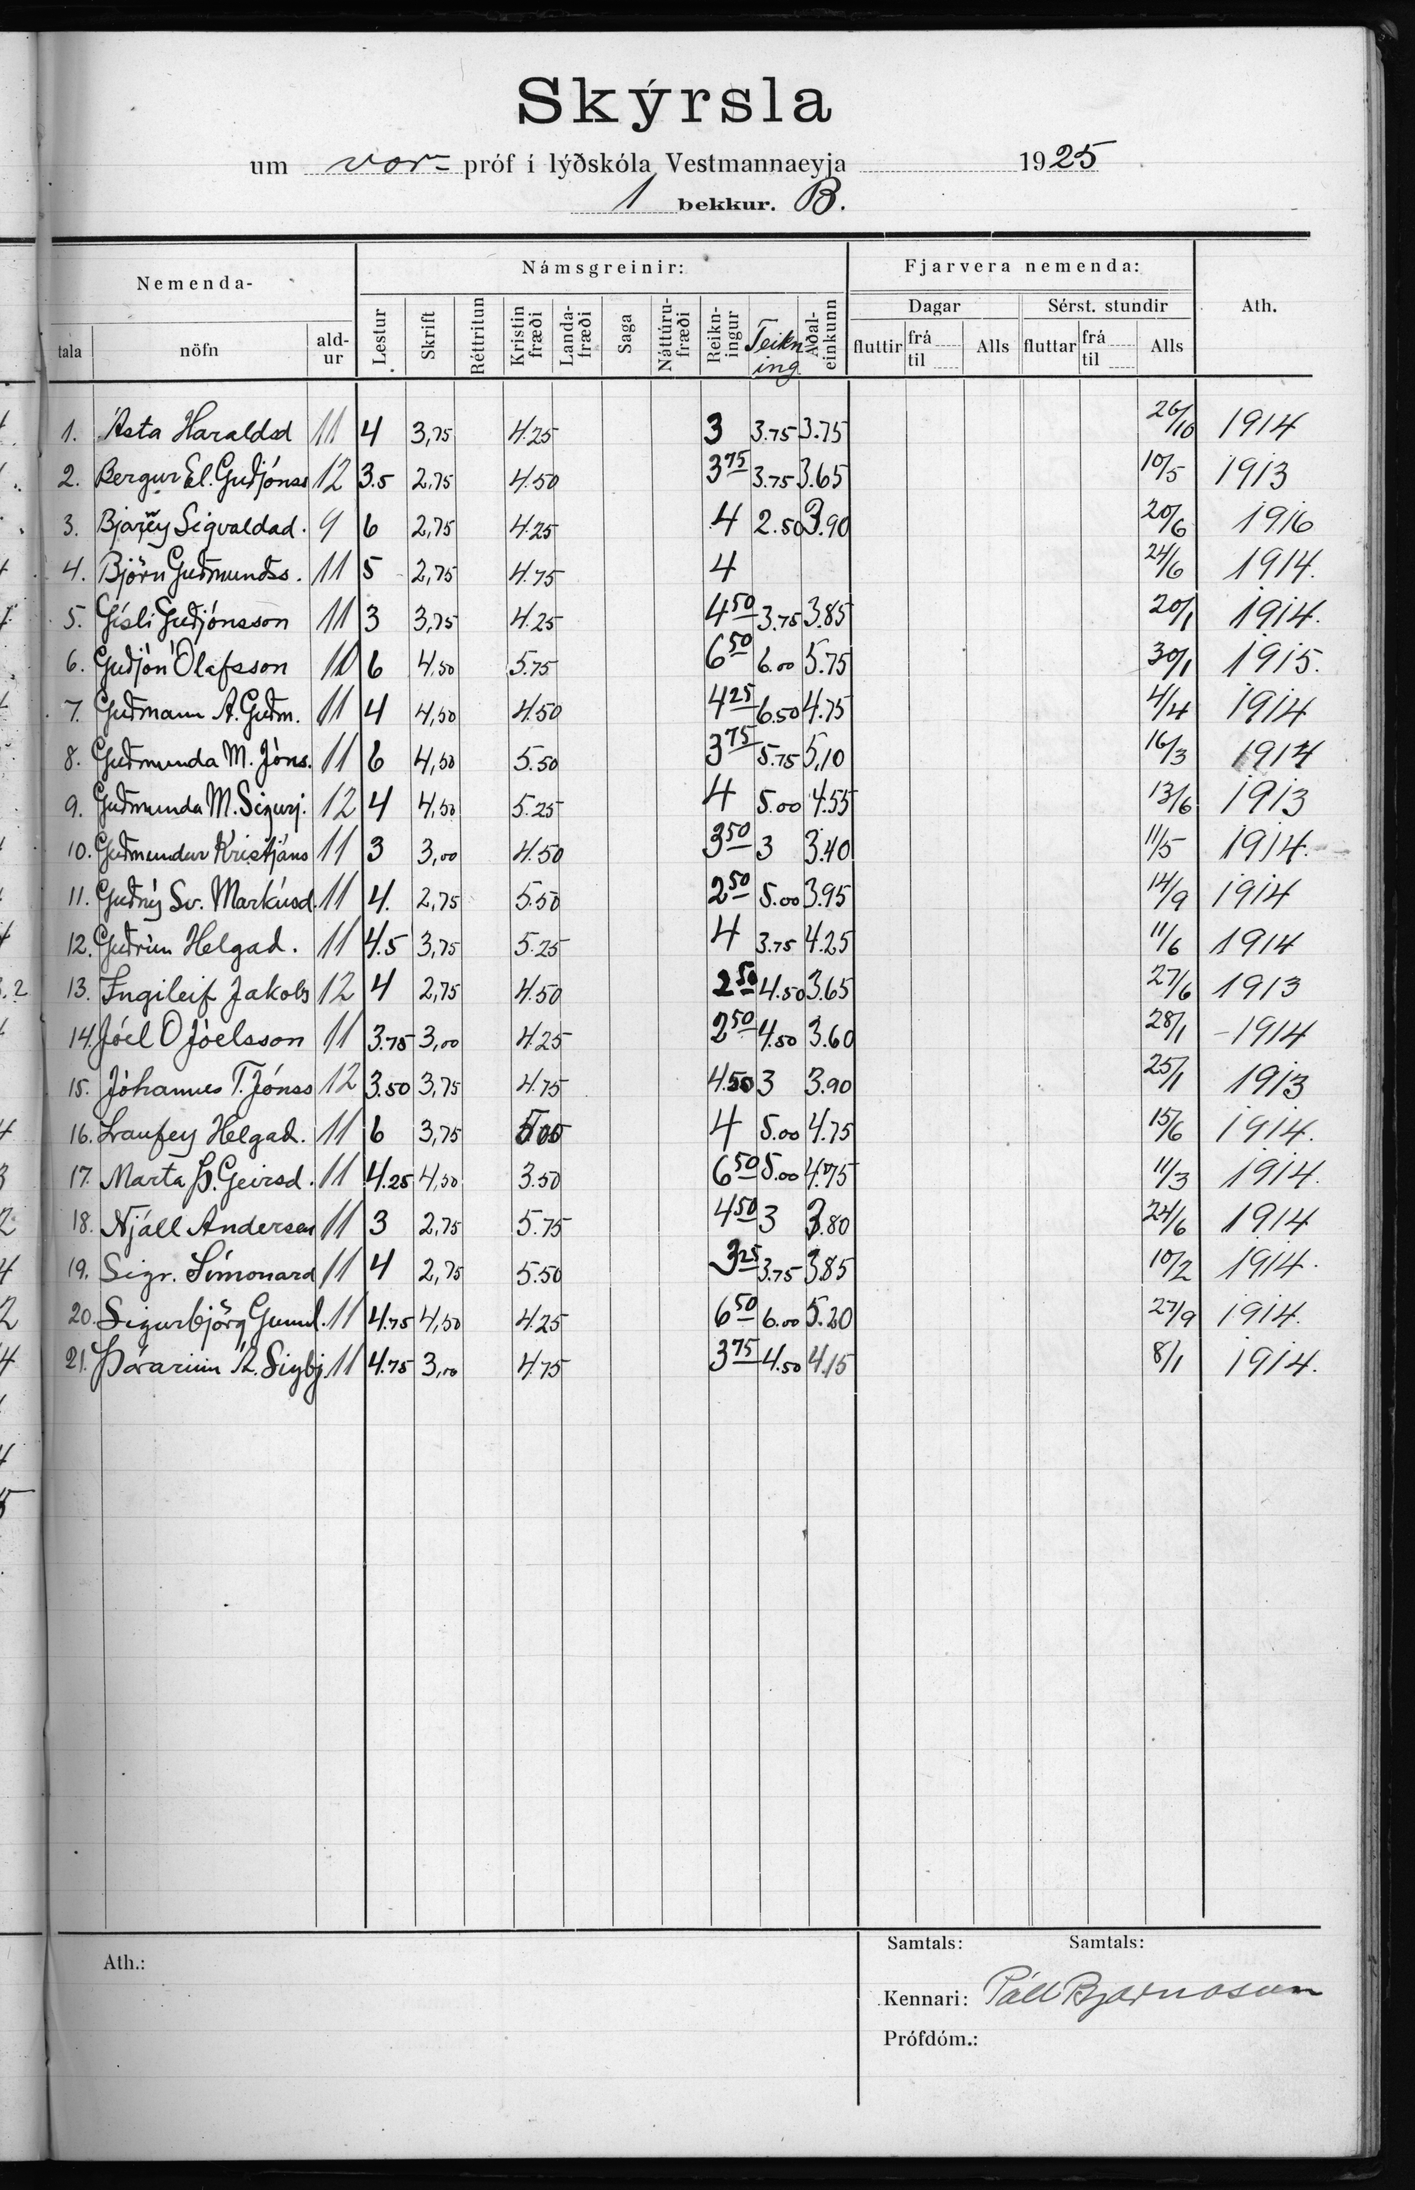 Skýrsla
um vor- próf í lýðskóla Vestmannaeyja 1925
1 bekkur. B.
Nemenda- Námsgreinir: Fjarvera nemenda: Ath.
Dagar Sérst. stundir
tala nöfn ald-ur Lestur Skrift Réttritun Kristin fræði Landa-fræði Saga Náttúru-fræði Reikn-ingur Teikn ing Aðal-einkunn fluttir frá til Alls fluttar frá til Alls
1. Ásta Haraldsd 11 4 3,75 4.25 3 3.75 3.75 26/10 1914
2. Bergur El. Guðjónss 12 3.5 2,75 4.50 3 75 3.75 3.65 10/5 1913
3. Bjarey Sigvaldad. 9 6 2,75 4.25 4 2.50 3.90 20/6 1916
4. Björn Guðmundss. 11 5 2,75 4.75 4 24/6 1914.
5. Gísli Guðjónsson 11 3 3,75 4.25 4 50 3.75 3.85 20/1 1914.
6. Guðjón Ólafsson 10 6 4,50 5.75 6 50 6.00 5.75 30/1 1915.
7. Guðmann A. Guðm. 11 4 4,50 4.50 4 25 6.50 4.75 4/4 1914
8. Guðmunda M. Jóns. 11 6 4,50 5.50 3 75 5.75 5,10 16/3 1914
9. Guðmunda M. Sigurj. 12 4 4,50 5.25 4 5.00 4.55 13/6 1913
10. Guðmundur Kristjáns 11 3 3,00 4.50 3 50 3 3.40 11/5 1914.
11. Guðný Sv. Markúsd. 11 4. 2,75 5.50 2 50 5.00 3.95 14/9 1914
12. Guðrún Helgad. 11 4.5 3,75 5.25 4 3.75 4.25 11/6 1914
13. Ingileif Jakobs 12 4 2,75 4.50 2 50 4.50 3.65 27/6 1913
14. Jóel O Jóelsson 11 3.75 3,00 4.25 2 50 4.50 3.60 28/1 -1914
15. Jóhannes T. Jónss 12 3.50 3,75 4.75 4.50 3 3.90 25/1 1913
16. Laufey Helgad. 11 6 3,75 5.00 4 5.00 4.75 15/6 1914.
17. Marta Þ. Geirsd. 11 4.25 4,50 3.50 6 50 5.00 4.75 11/3 1914.
18. Njáll Andersen 11 3 2,75 5.75 4 50 3 3.80 24/6 1914
19. Sigr. Símonard 11 4 2,75 5.50 3 25 3.75 3.85 10/2 1914.
20. Sigurbjörg Gunnl. 11 4.75 4,50 4.25 6 50 6.00 5.20 27/9 1914.
21. Þórarinn Á. Sigbj 11 4.75 3,00 4.75 3 75 4.50 4.15 8/1 1914.
Samtals: Samtals:
Ath.:
Kennari: Páll Bjarnason
Prófdóm.: